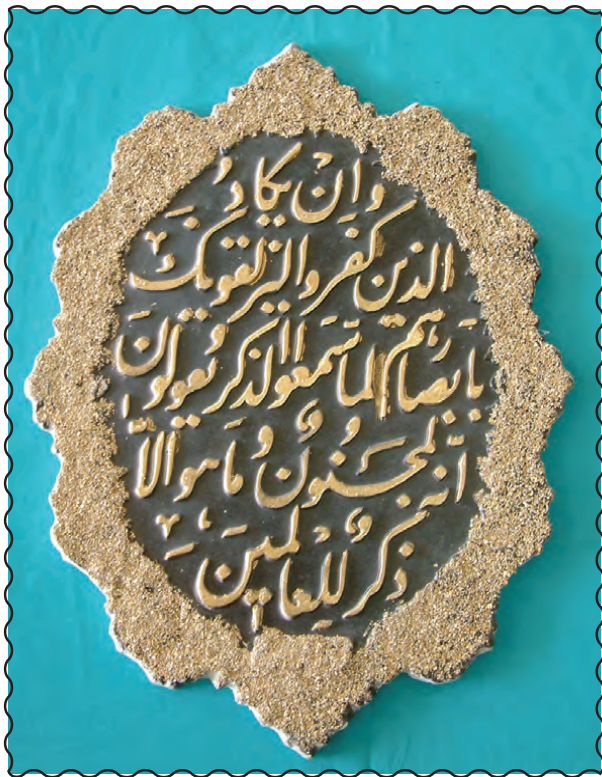 وَاِنْ یکادُ
الذین کفروا لیزلقونک
بابصارهم لما سمعوا الذکر و یقولون
انّه لمجنون و ما هو الّا
ذکر للعالمین